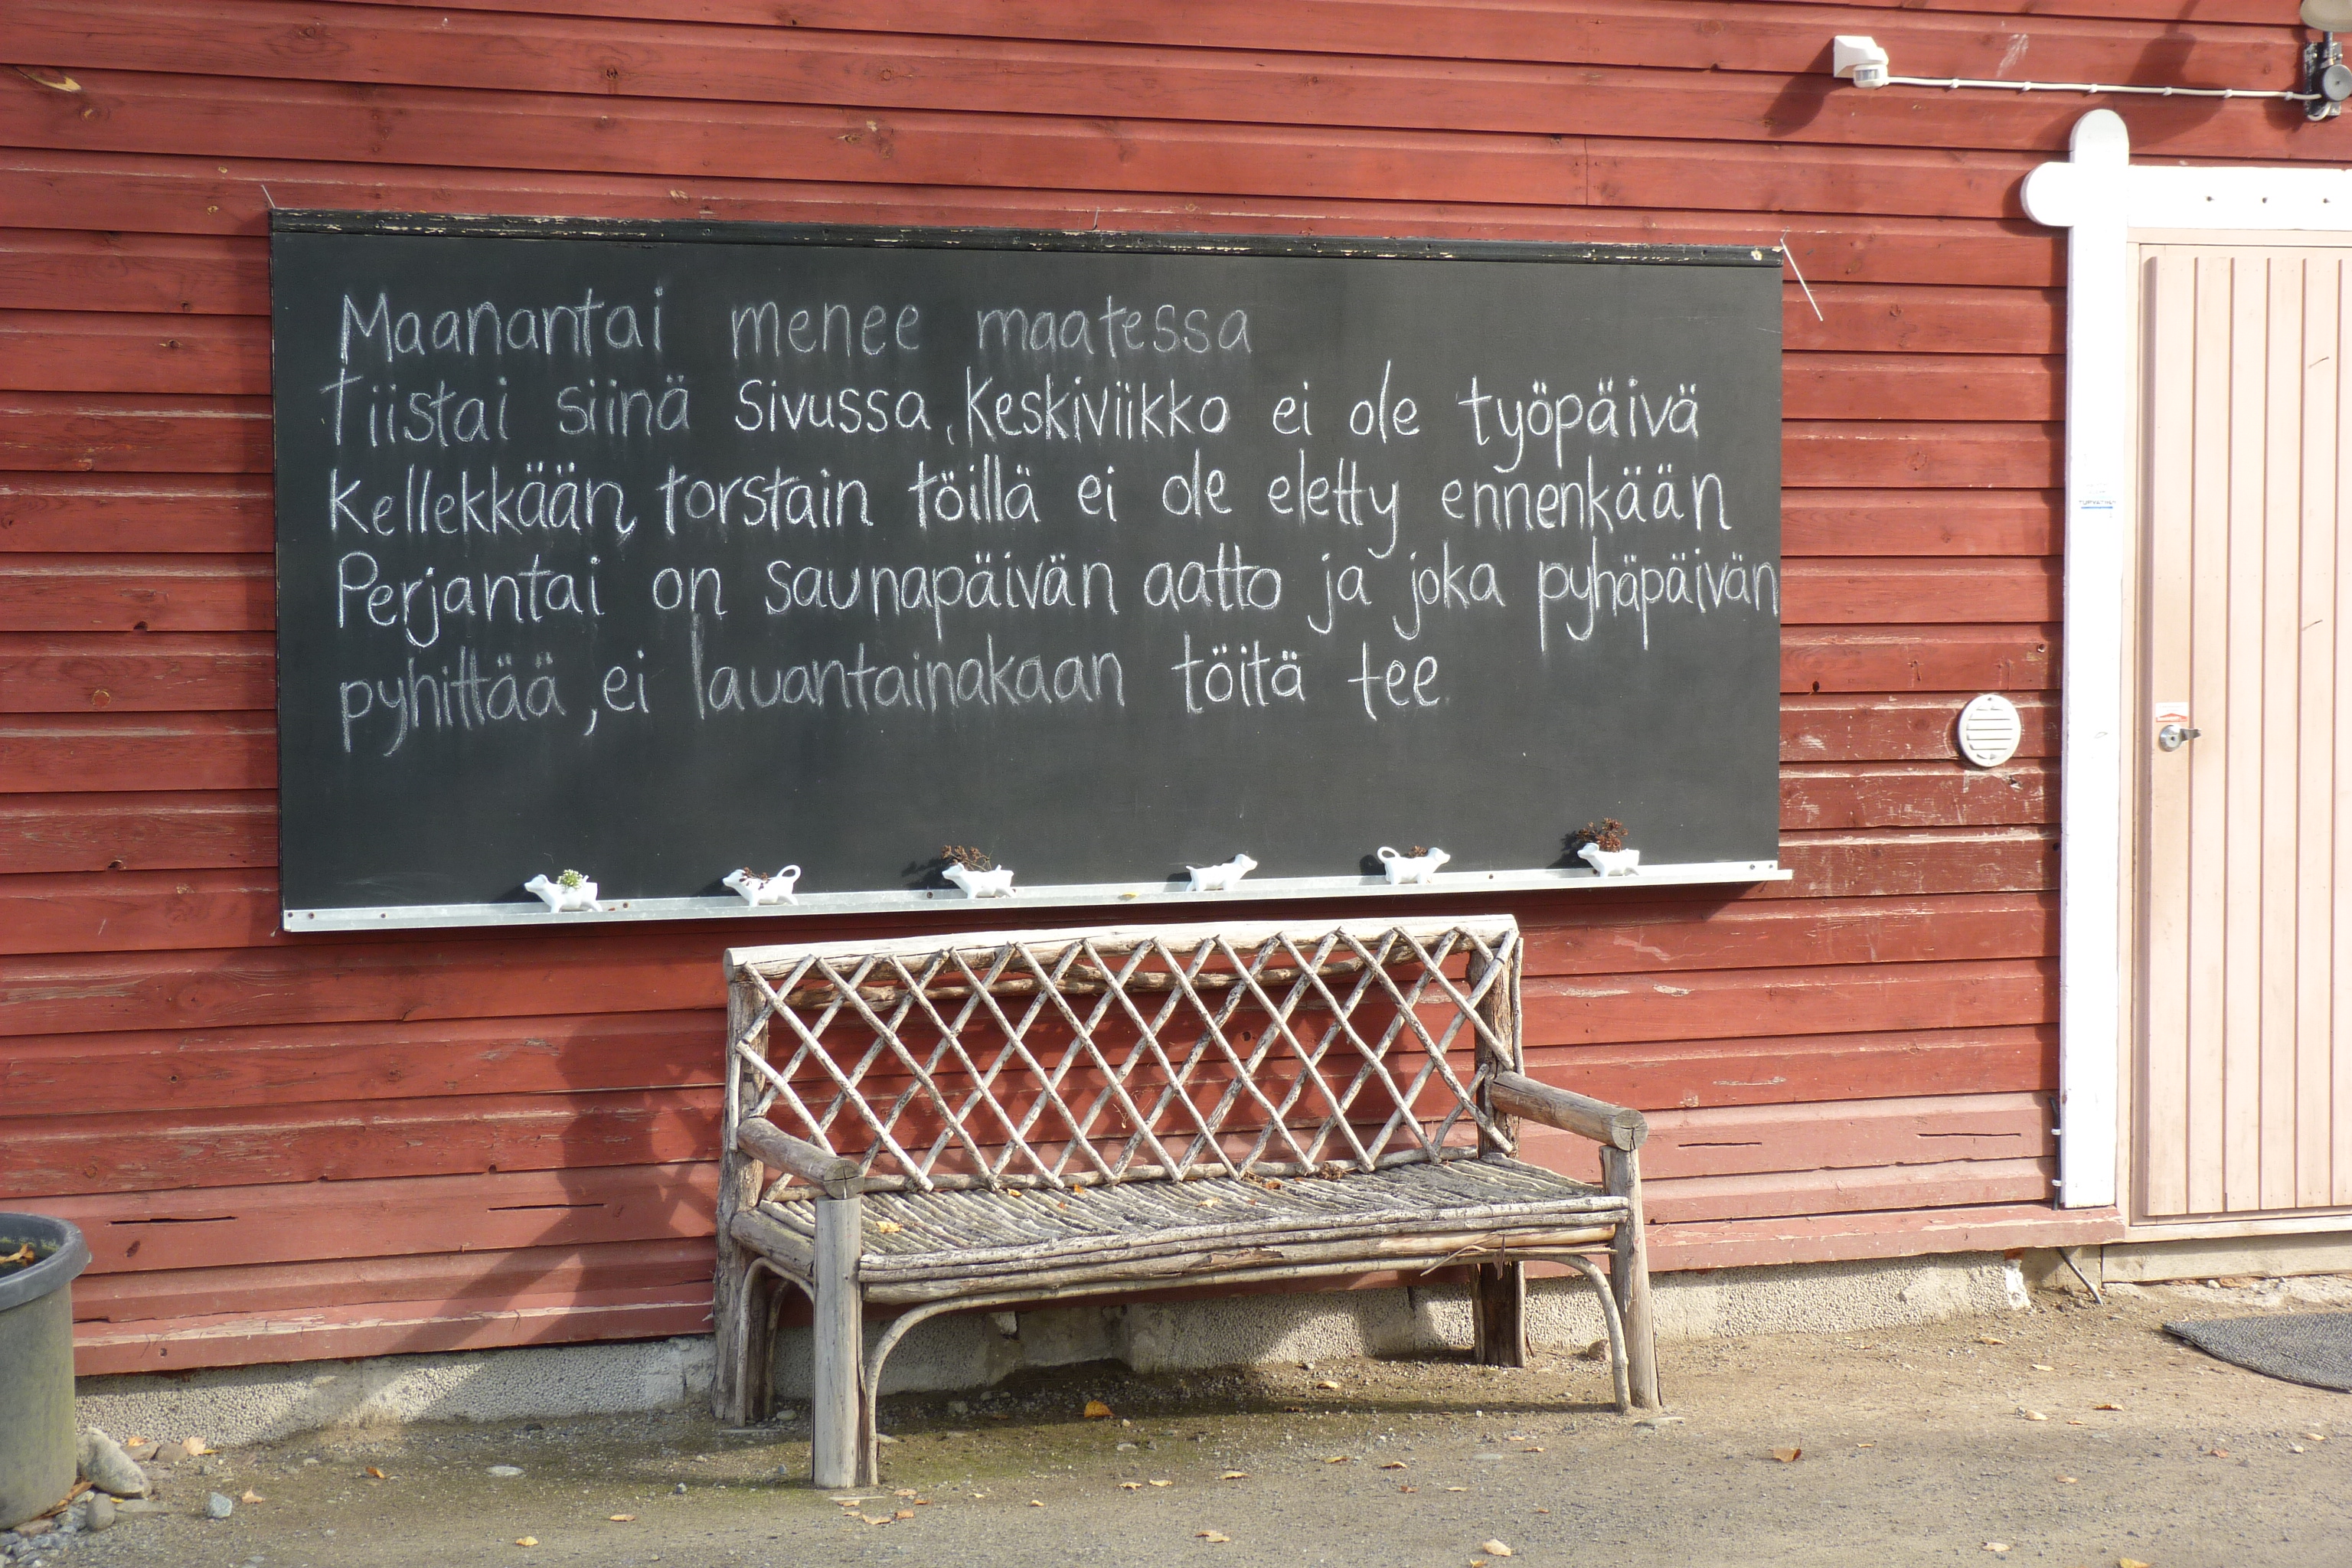 Maanantai menee maatessa
Tiistai siinä sivussa, Keskiviikko ei ole työpäivä
Kellekkään, torstain töillä ei ole eletty ennenkään
Perjantai on saunapäivän aatto ja joka pyhäpäivän
pyhittää, ei lauantainakaan töitä tee.